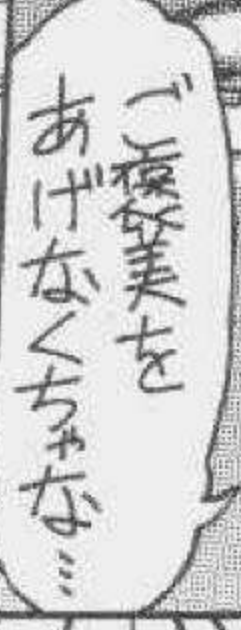 ご褒美を
あげなくちゃな…